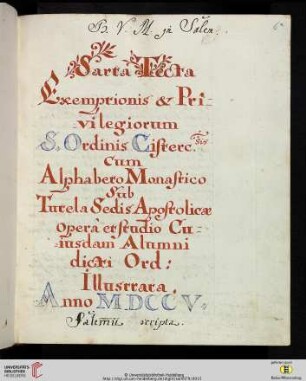 B. V. M. in Salem
Sarta Tecta
Exemptionis & Pri-
vilegiorum
S. Ordinis Cisterc:sis
Cum
Alphabeto Monastico
Sub
Tutela Sedis Apostolicæ
operâ et studio Cu-
iusdam Alumni
dicti Ord:
Illustrata.
Anno MDCCV.
Salemii scripta.
UNIVERSITÄTS-
BIBLIOTHEK
HEIDELBERG
© Universitätsbibliothek Heidelberg